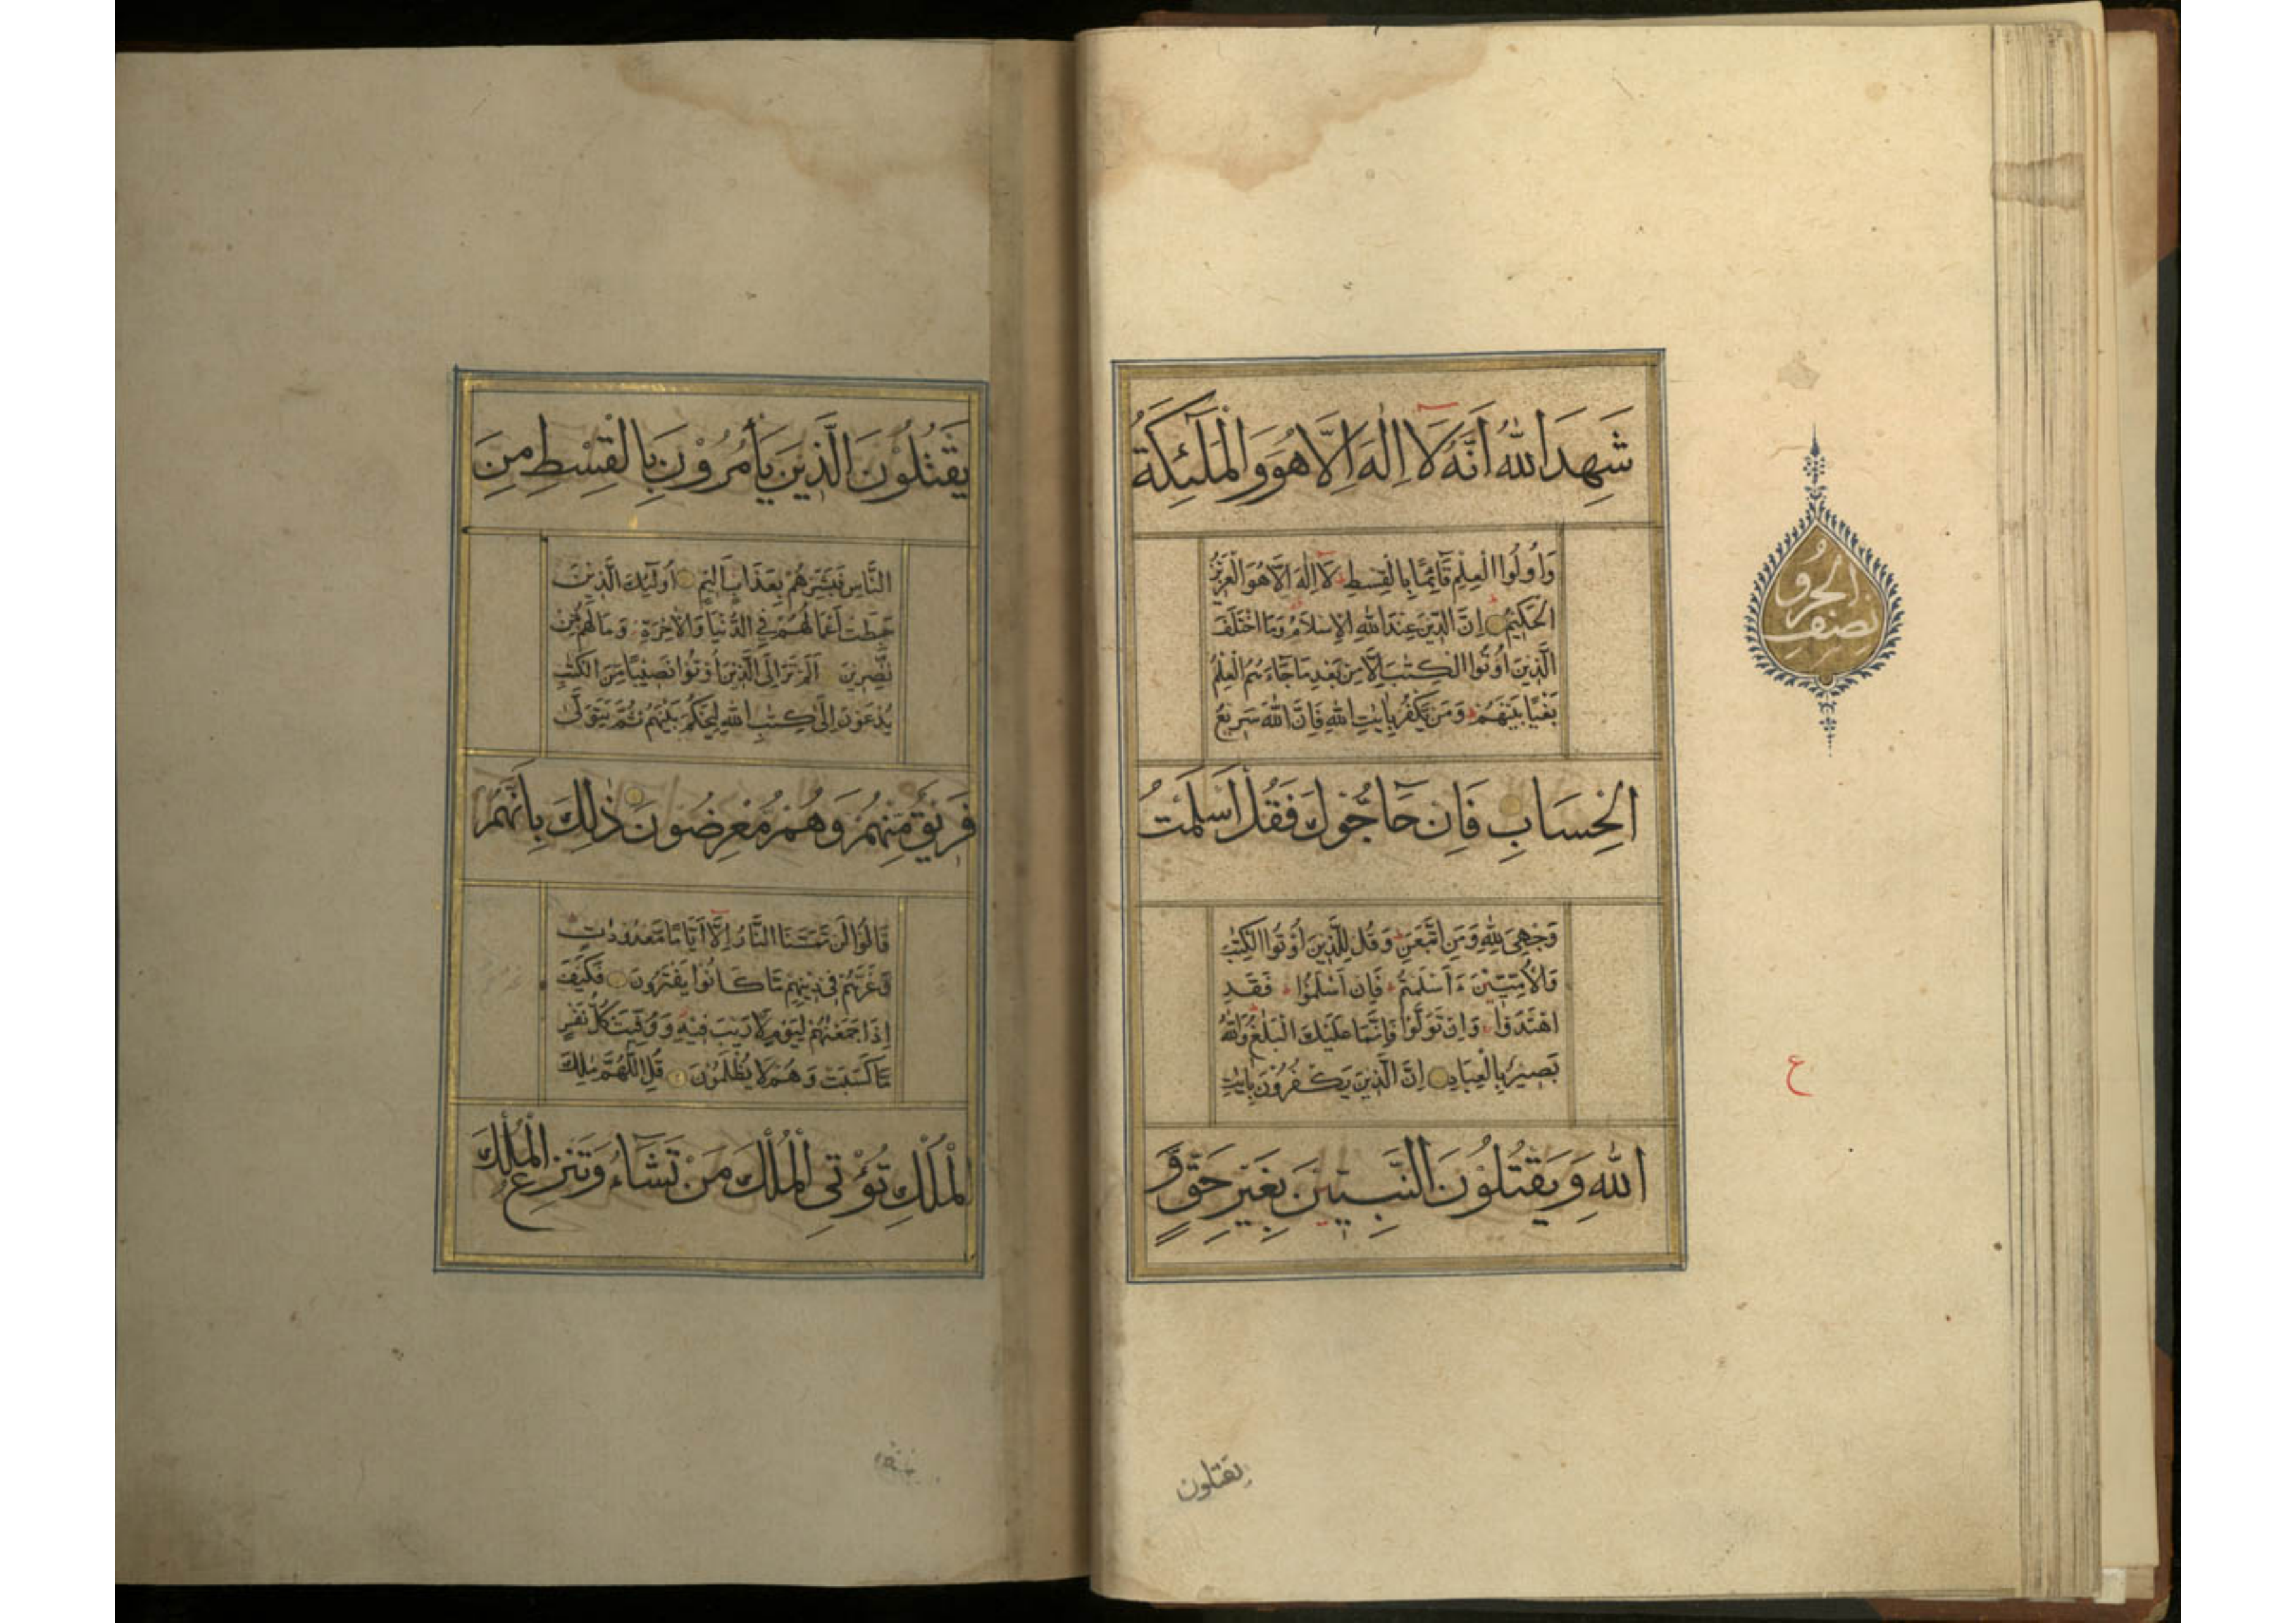 شَهِدَ اللهُ اَنَّهُ لَا اِلٰهَ اِلَّا هُوَ وَالْمَلٰٓئِكَةُ
وَاُولُوا الْعِلْمِ قَآئِمًا بِالْقِسْطِ لَا اِلٰهَ اِلَّا هُوَ الْعَزِيْزُ
الْحَكِيْمُ اِنَّ الدِّيْنَ عِنْدَ اللهِ الْاِسْلَامُ وَمَا اخْتَلَفَ
الَّذِيْنَ اُوْتُوا الْكِتٰبَ اِلَّا مِنْ بَعْدِ مَا جَآءَهُمُ الْعِلْمُ
بَغْيًا بَيْنَهُمْ وَمَنْ يَكْفُرْ بِاٰيٰتِ اللهِ فَاِنَّ اللهَ سَرِيْعُ
الْحِسَابِ فَاِنْ حَآجُّوْكَ فَقُلْ اَسْلَمْتُ
وَجْهِيَ لِلّٰهِ وَمَنِ اتَّبَعَنِ وَقُلْ لِلَّذِيْنَ اُوْتُوا الْكِتٰبَ
وَالْاُمِّيّٖنَ ءَاَسْلَمْتُمْ فَاِنْ اَسْلَمُوْا فَقَدِ
اهْتَدَوْا وَاِنْ تَوَلَّوْا فَاِنَّمَا عَلَيْكَ الْبَلٰغُ وَاللهُ
بَصِيْرٌ بِالْعِبَادِ اِنَّ الَّذِيْنَ يَكْفُرُوْنَ بِاٰيٰتِ
اللهِ وَيَقْتُلُوْنَ النَّبِيّٖنَ بِغَيْرِ حَقٍّ وَّ
يقتلون
نصف الحزو
ع
يَقْتُلُوْنَ الَّذِيْنَ يَأْمُرُوْنَ بِالْقِسْطِ مِنَ
النَّاسِ فَبَشِّرْهُمْ بِعَذَابٍ اَلِيْمٍ اُولٰٓئِكَ الَّذِيْنَ
حَبِطَتْ اَعْمَالُهُمْ فِي الدُّنْيَا وَالْاٰخِرَةِ وَمَا لَهُمْ مِّنْ
نّٰصِرِيْنَ اَلَمْ تَرَ اِلَى الَّذِيْنَ اُوْتُوْا نَصِيْبًا مِّنَ الْكِتٰبِ
يُدْعَوْنَ اِلٰى كِتٰبِ اللهِ لِيَحْكُمَ بَيْنَهُمْ ثُمَّ يَتَوَلّٰى
فَرِيْقٌ مِّنْهُمْ وَهُمْ مُّعْرِضُوْنَ ذٰلِكَ بِاَنَّهُمْ
قَالُوْا لَنْ تَمَسَّنَا النَّارُ اِلَّآ اَيَّامًا مَّعْدُوْدٰتٍ
وَّغَرَّهُمْ فِيْ دِيْنِهِمْ مَّا كَانُوْا يَفْتَرُوْنَ فَكَيْفَ
اِذَا جَمَعْنٰهُمْ لِيَوْمٍ لَّا رَيْبَ فِيْهِ وَوُفِّيَتْ كُلُّ نَفْسٍ
مَّا كَسَبَتْ وَهُمْ لَا يُظْلَمُوْنَ قُلِ اللّٰهُمَّ مٰلِكَ
الْمُلْكِ تُؤْتِي الْمُلْكَ مَنْ تَشَآءُ وَتَنْزِعُ الْمُلْكَ